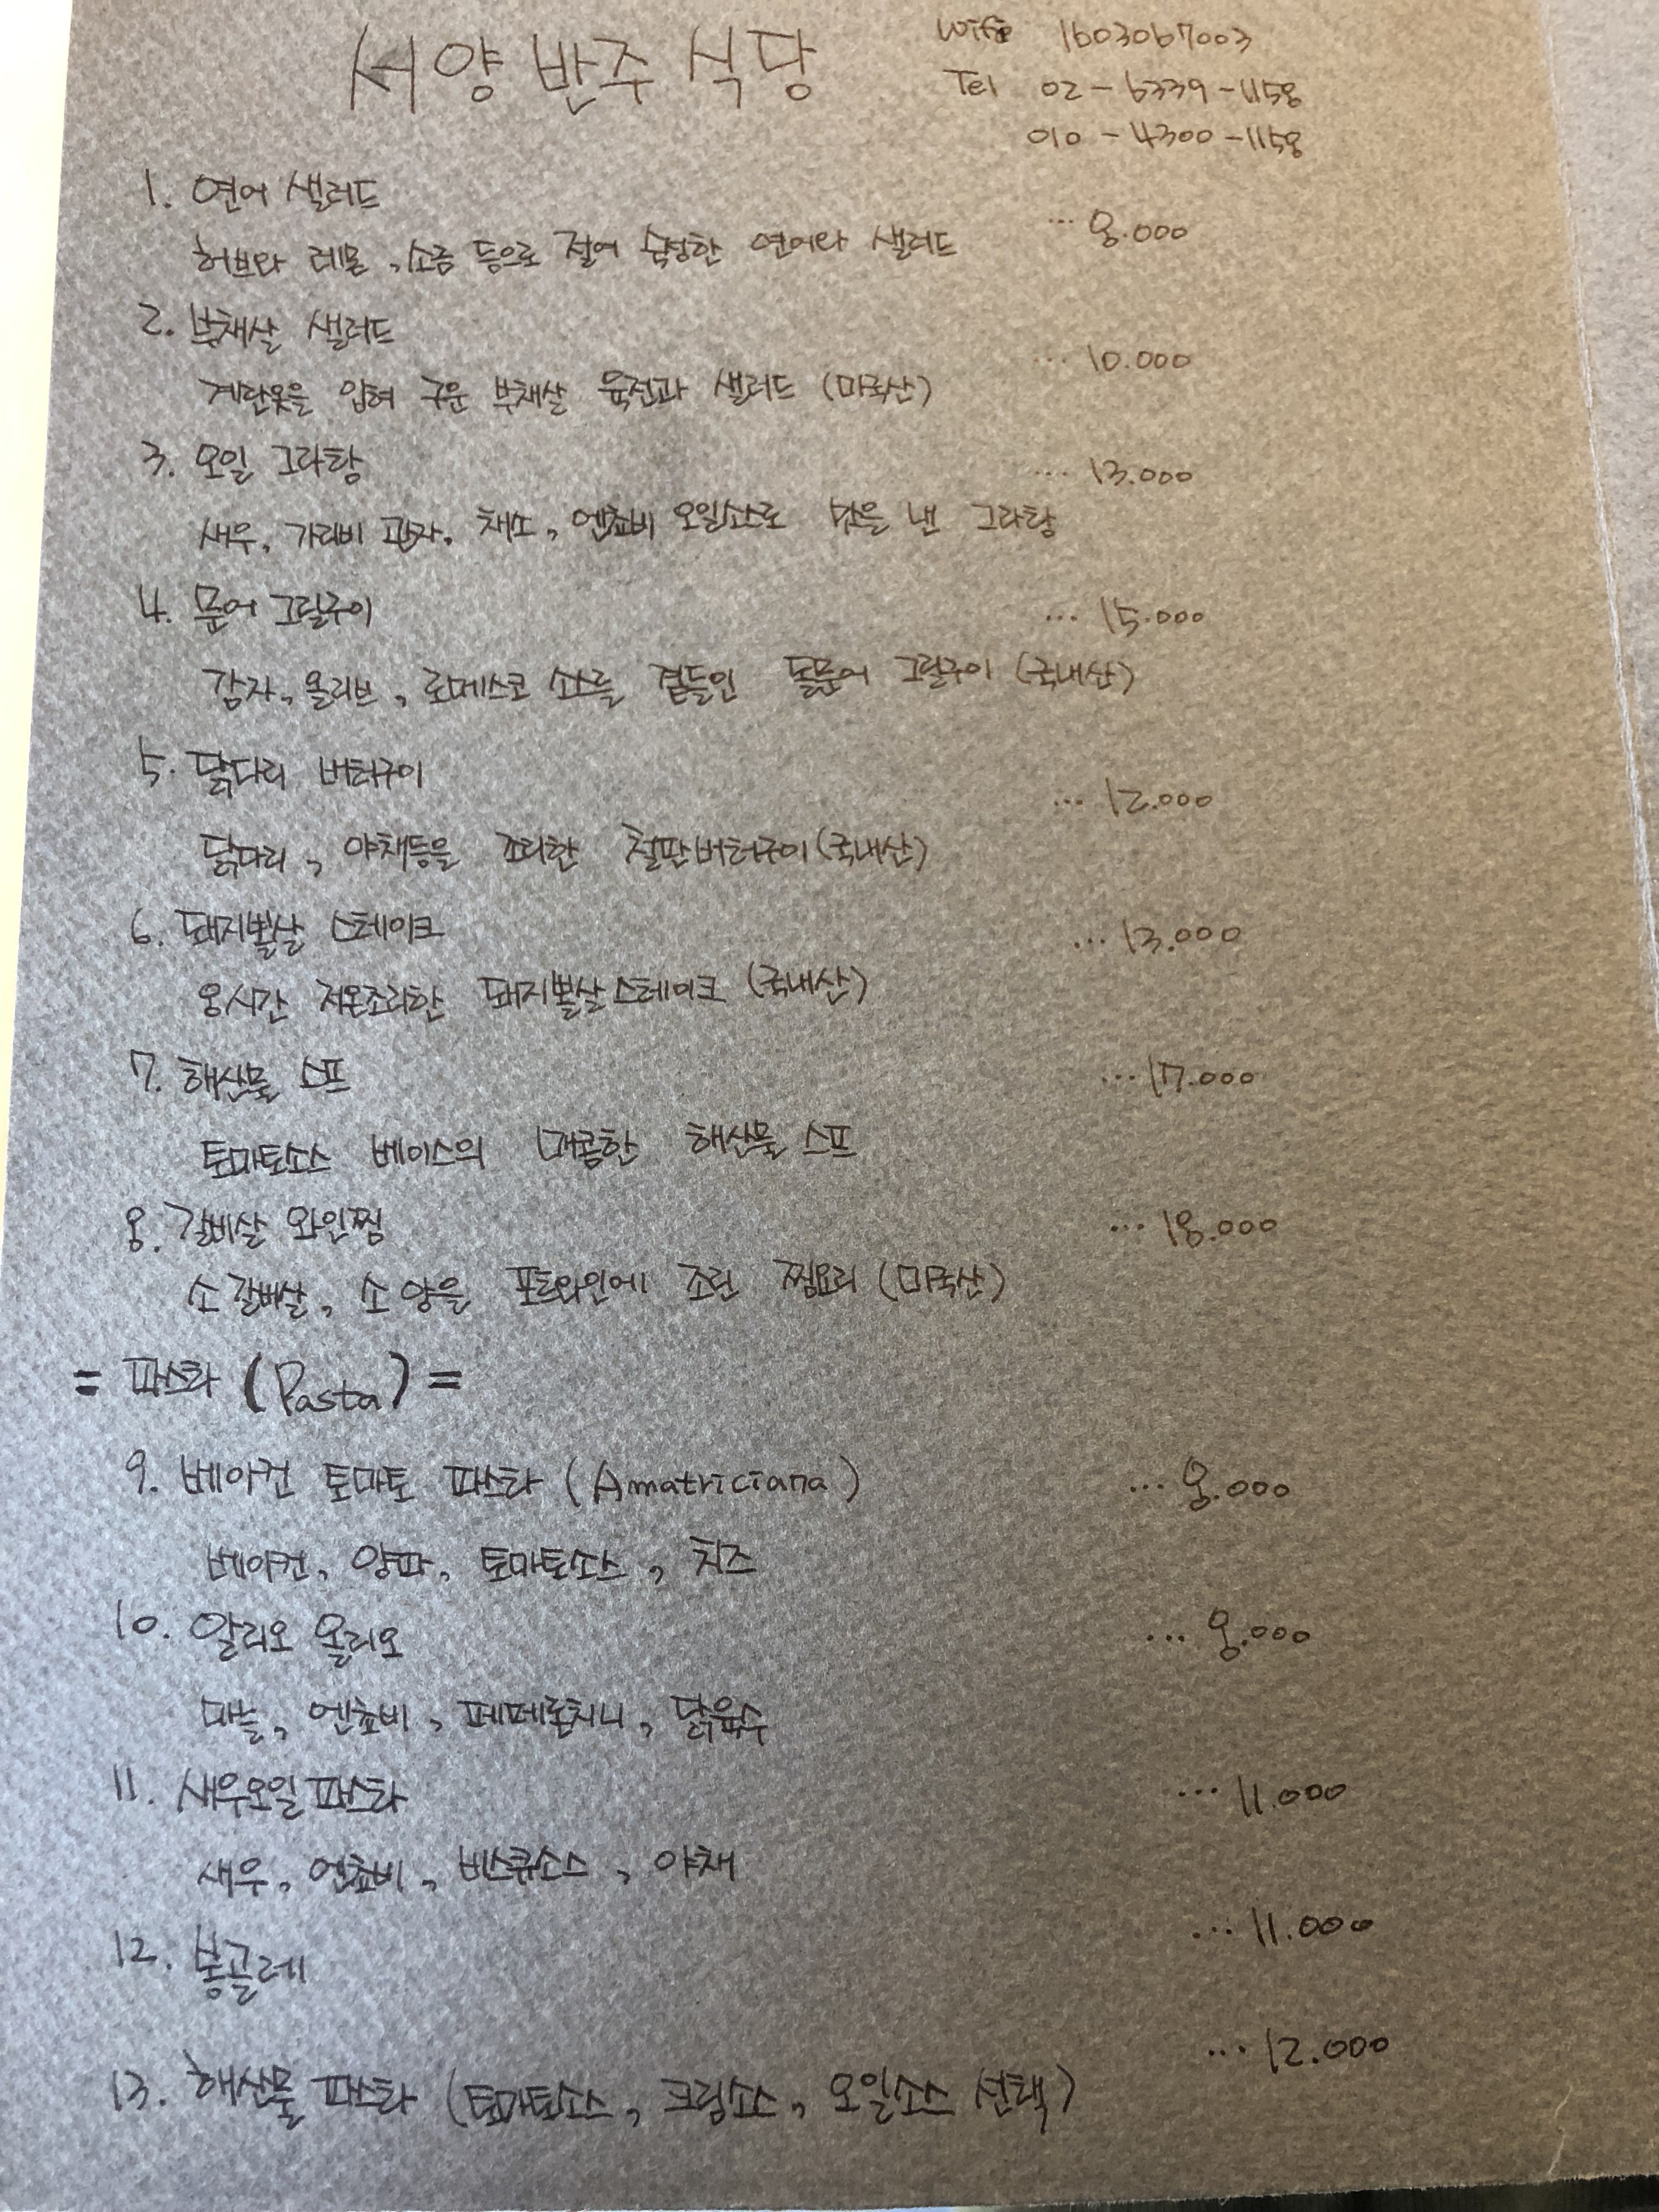 서양반주식당
Wifi 1603067003
Tel 02-6339-1158
010-4300-1158
1. 연어 샐러드 ... 8.000
허브와 레몬, 소금 등으로 절여 숙성한 연어와 샐러드
2. 부채살 샐러드 ... 10.000
계란옷을 입혀 구운 부채살 육전과 샐러드 (미국산)
3. 오일 그라탕 ... 13.000
새우, 가리비 관자, 채소, 엔쵸비 오일소스로 맛을 낸 그라탕
4. 문어 그릴구이 ... 15.000
감자, 올리브, 로메스코 소스를 곁들인 돌문어 그릴구이 (국내산)
5. 닭다리 버터구이 ... 12.000
닭다리, 야채등을 조리한 철판버터구이 (국내산)
6. 돼지뽈살 스테이크 ... 13.000
8시간 저온조리한 돼지뽈살스테이크 (국내산)
7. 해산물 스프 ... 17.000
토마토소스 베이스의 매콤한 해산물 스프
8. 갈비살 와인찜 ... 18.000
소갈비살, 소양을 포트와인에 조린 찜요리 (미국산)
= 파스타 (Pasta) =
9. 베이컨 토마토 파스타 (Amatriciana) ... 8.000
베이컨, 양파, 토마토소스, 치즈
10. 알리오 올리오 ... 8.000
마늘, 엔쵸비, 페페론치니, 닭육수
11. 새우오일파스타 ... 11.000
새우, 엔쵸비, 비스큐소스, 야채
12. 봉골레 ... 11.000
13. 해산물 파스타 (토마토소스, 크림소스, 오일소스 선택) ... 12.000